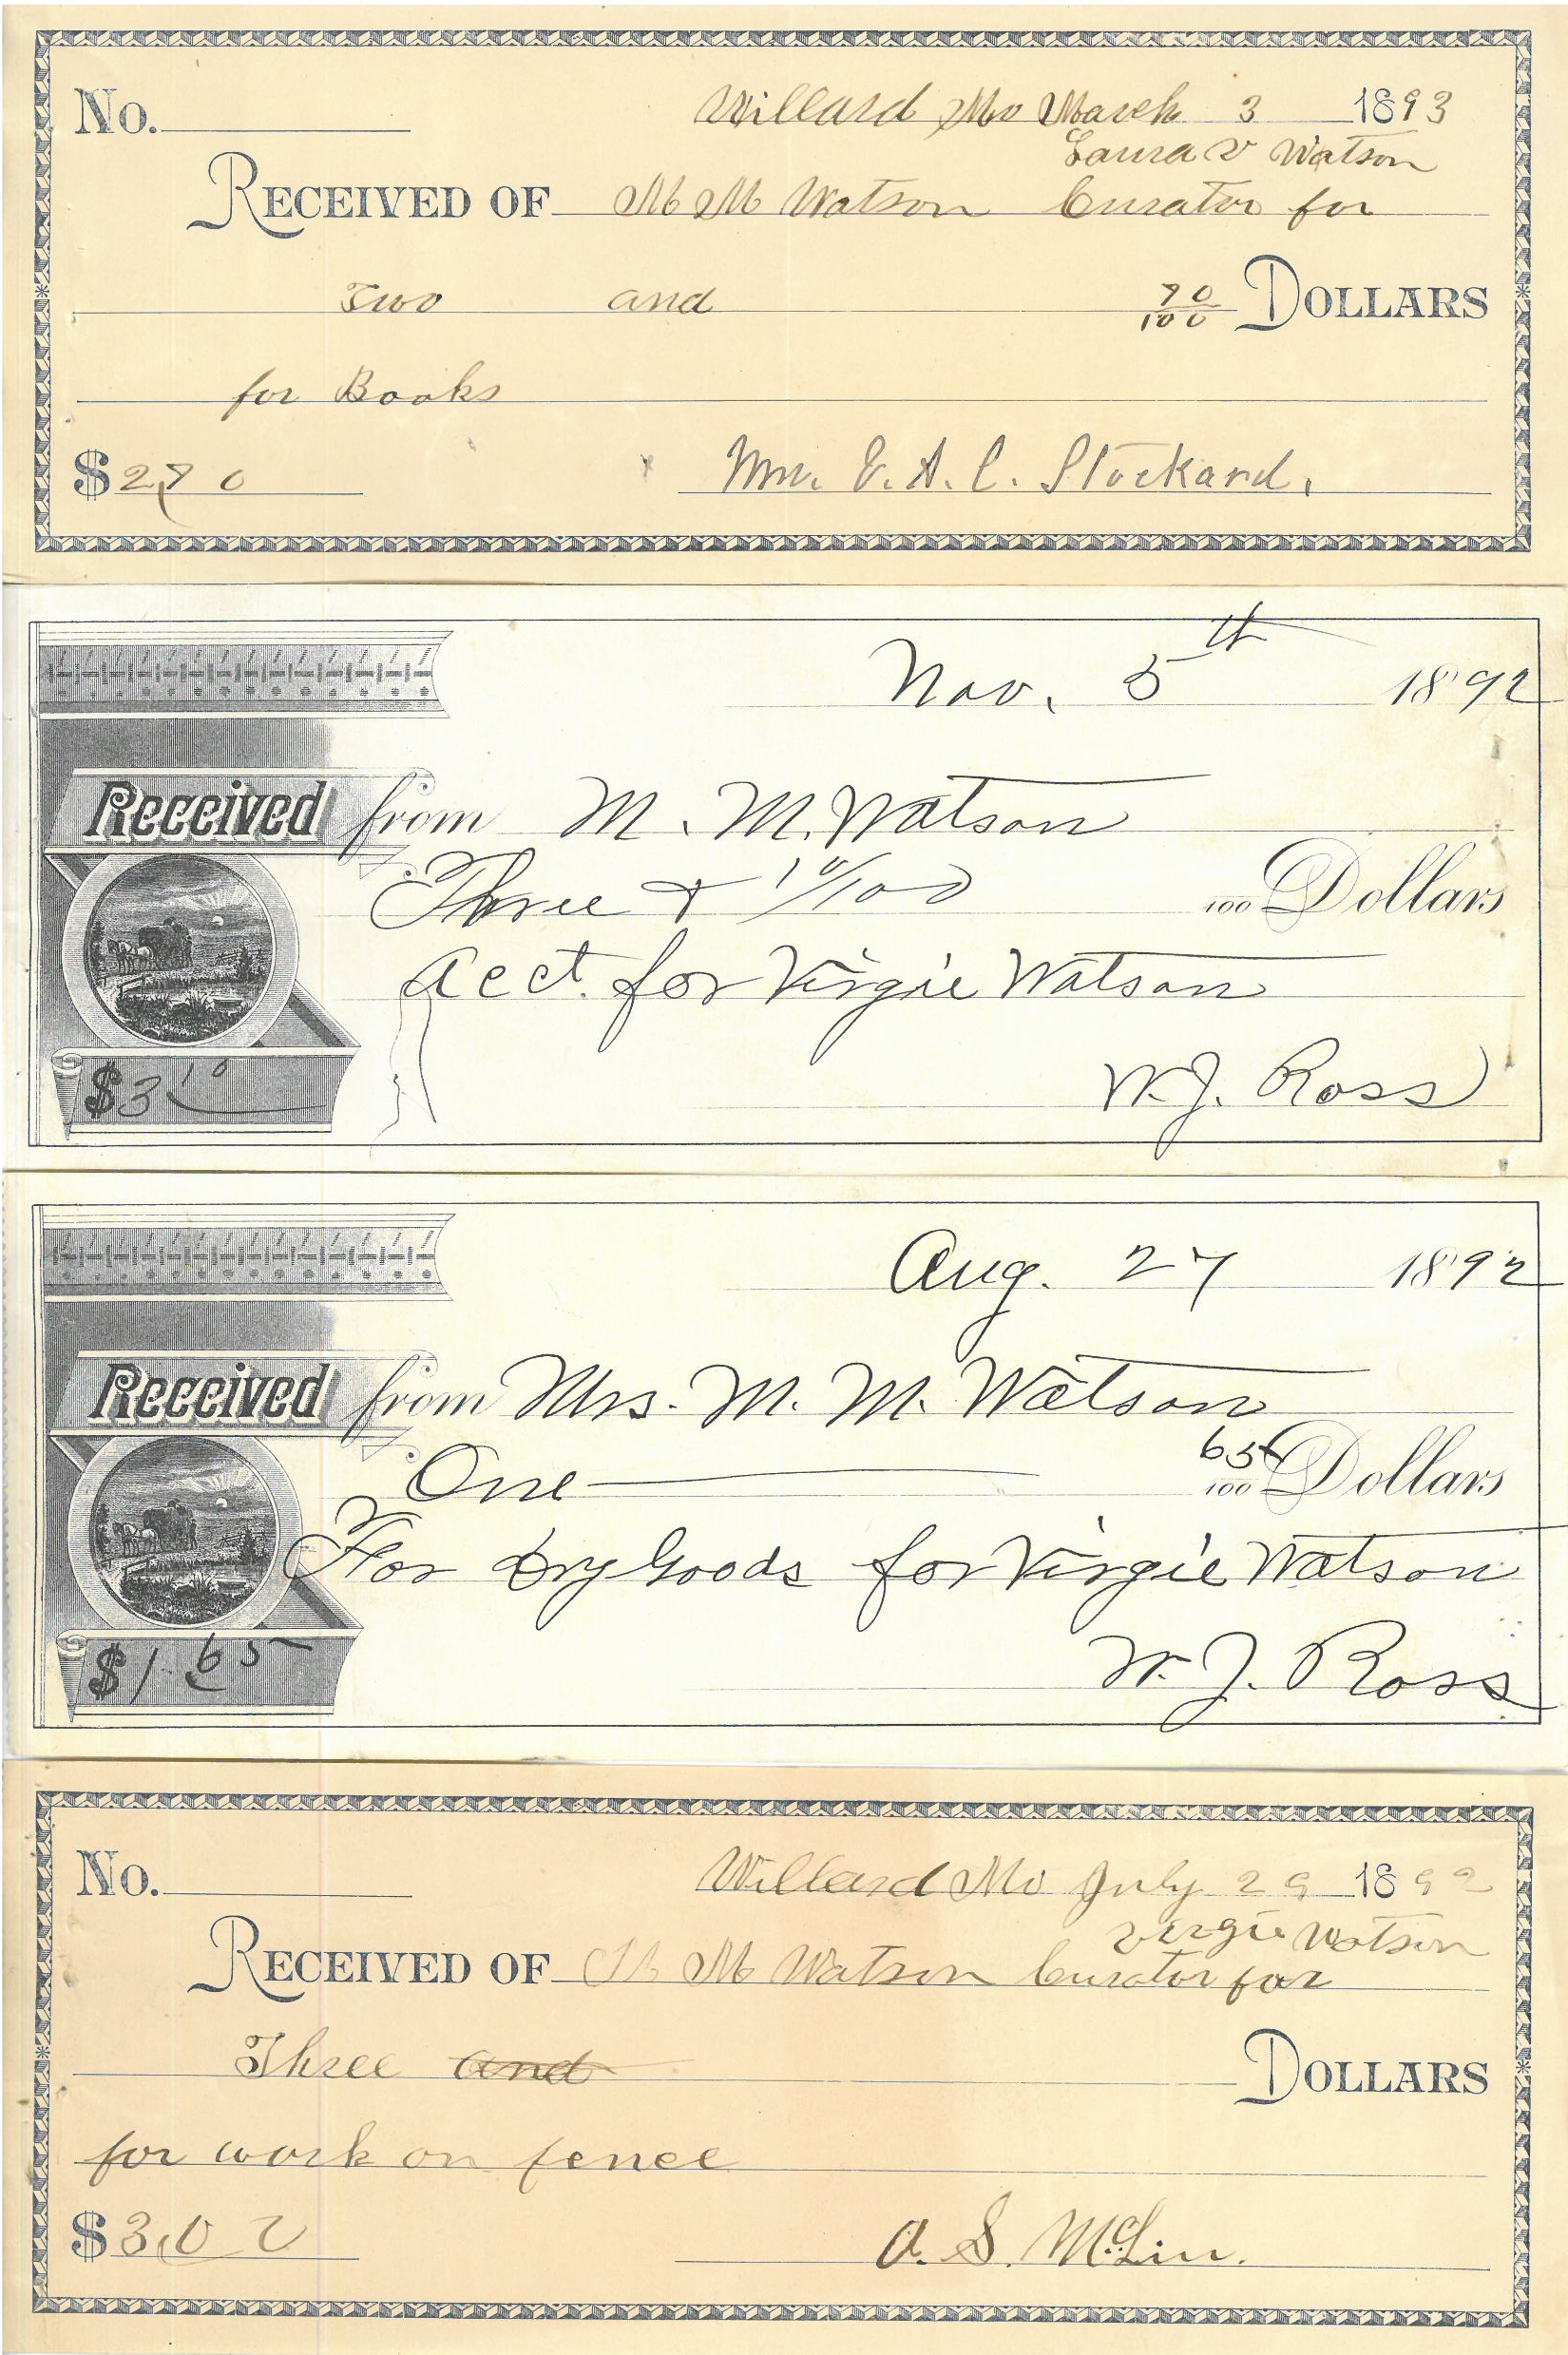 No. Willard Mo March 3 1893
Laura V Watson
RECEIVED OF M M Watson Curator for
Two and 90/100 DOLLARS
for Books
$2.90 Wm. E. A. C. Stockard.
Nov. 5th 1892
Received from M. M. Watson
Three & 10/100 100 Dollars
acct. for Virgie Watson
W. J. Ross
$3 10
Aug. 27 1892
Received from Mrs. M. M. Watson
One 65/100 Dollars
For Dry Goods for Virgie Watson
W. J. Ross
$1.65
No. Willard Mo July 29 1892
Virgie Watson
RECEIVED OF M M Watson Curator for
Three and DOLLARS
for work on fence
$3.00 A. S. McLin.